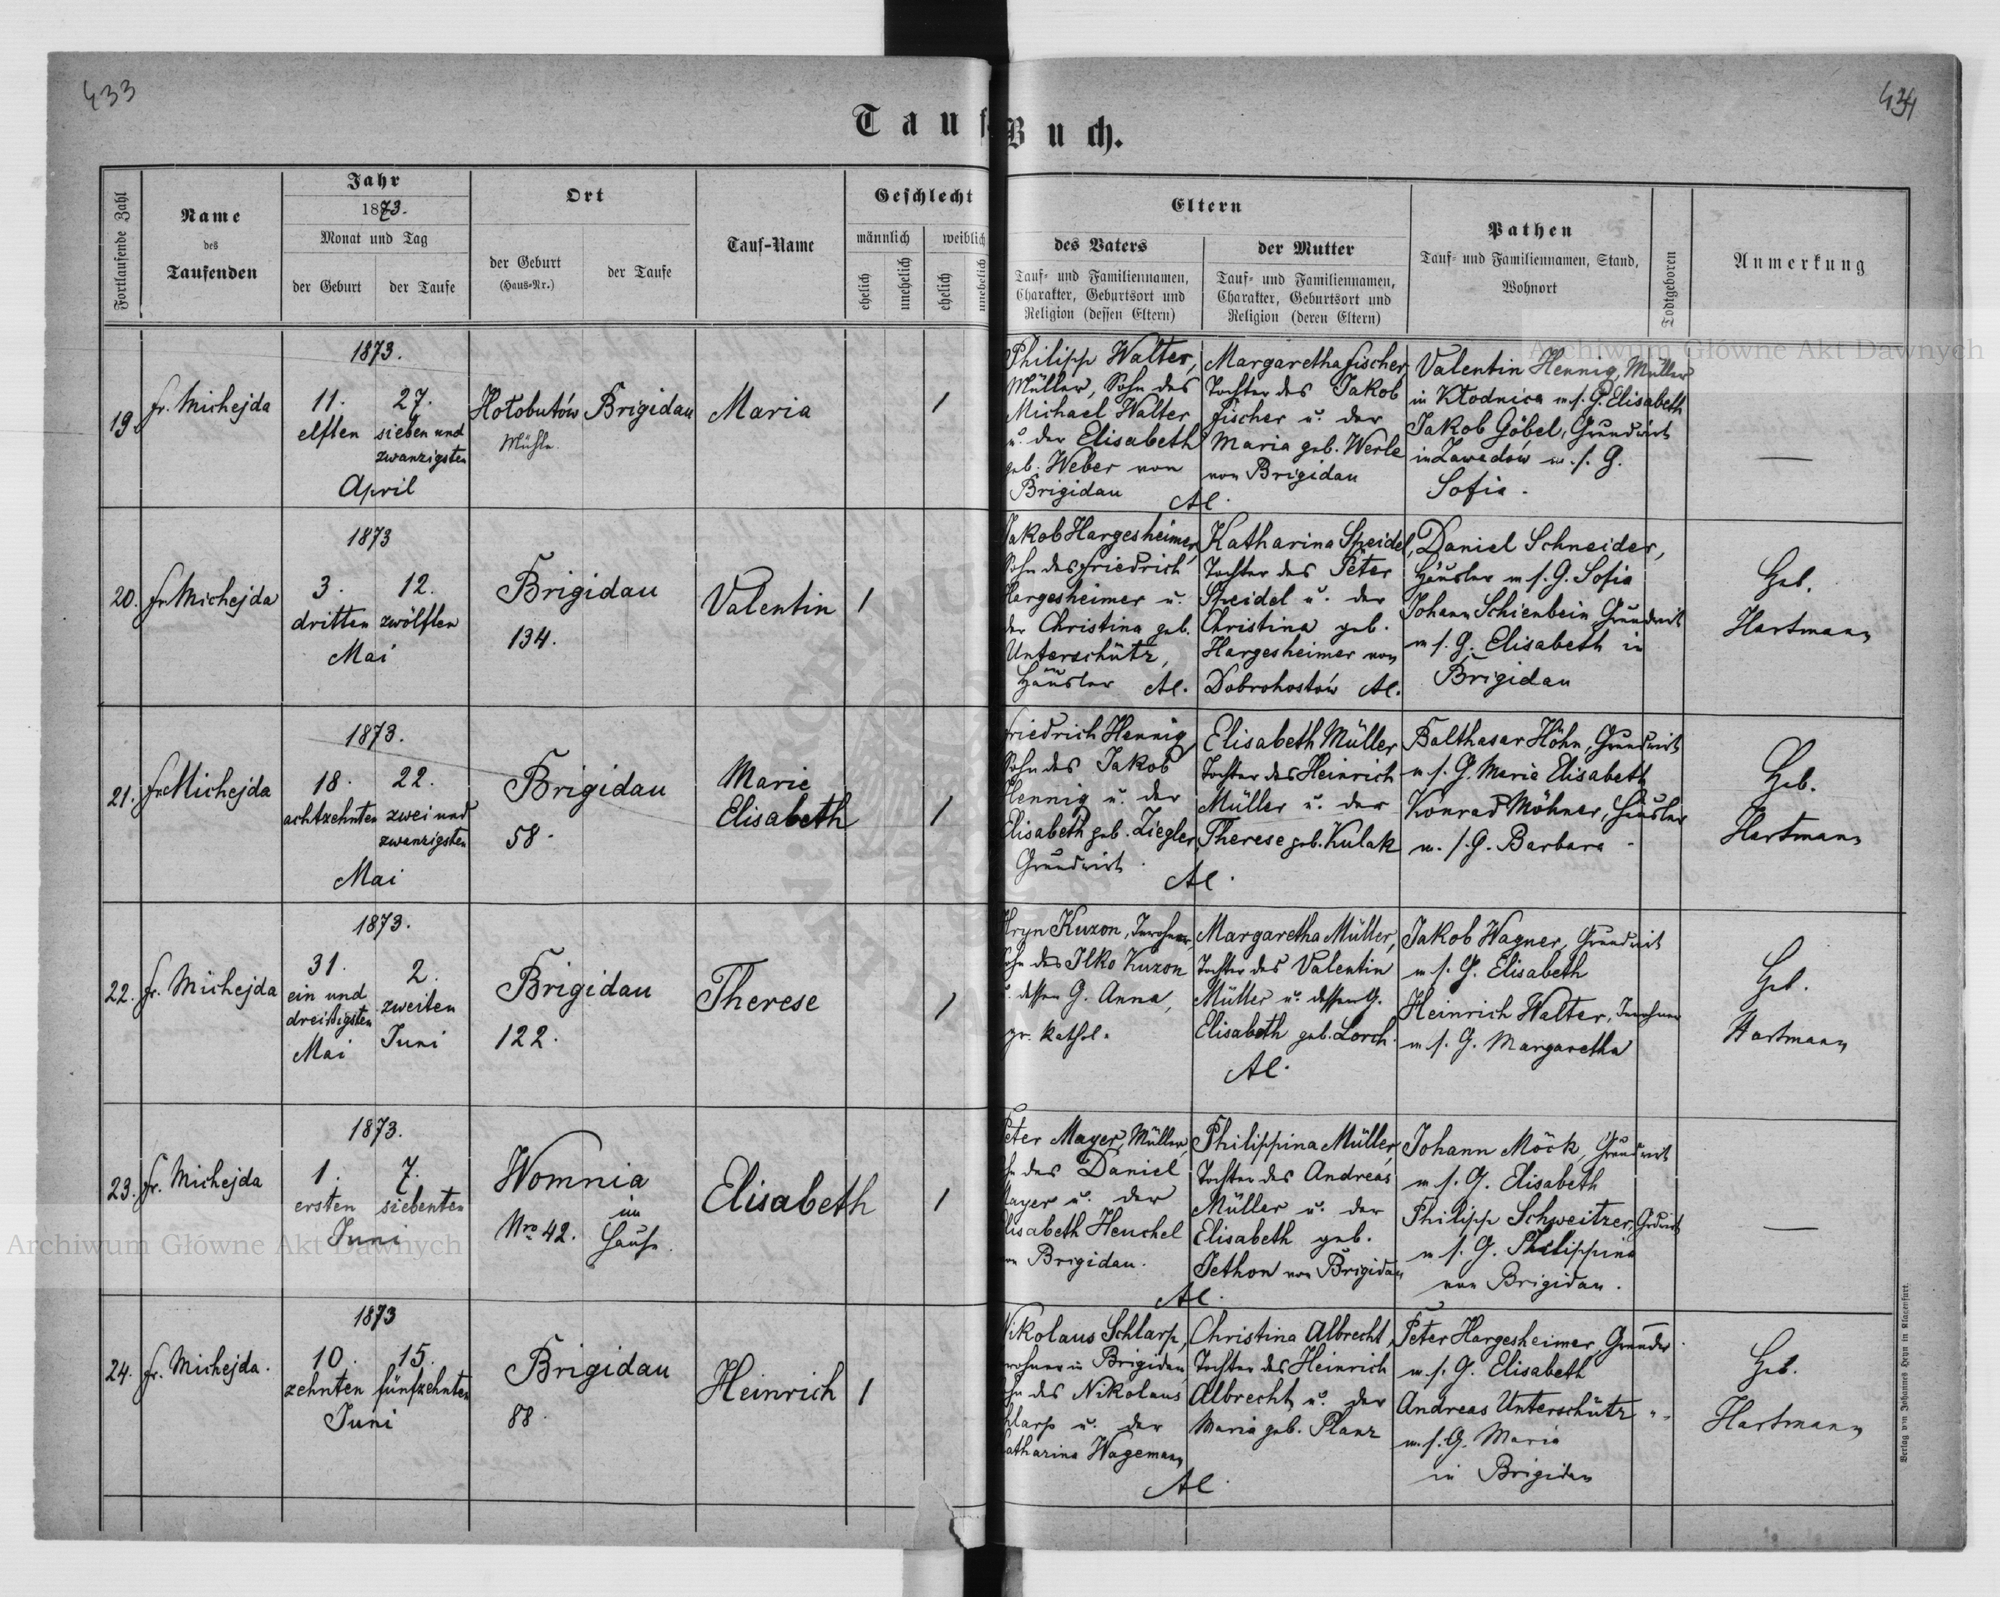 433
434
Tauf-Buch.
Fortlaufende Zahl
Name
des
Taufenden
Jahr
1873.
Monat und Tag
der Geburt
der Taufe
Ort
der Geburt
(Haus-Nr.)
der Taufe
Tauf-Name
Geschlecht
männlich
weiblich
ehelich
unehelich
ehelich
unehelich
Eltern
des Vaters
Tauf- und Familiennamen,
Charakter, Geburtsort und
Religion (dessen Eltern)
der Mutter
Tauf- und Familiennamen,
Charakter, Geburtsort und
Religion (deren Eltern)
Pathen
Tauf- und Familiennamen, Stand,
Wohnort
Todtgeboren
Anmerkung
19.
fr. Michejda
1873.
11. 27.
elften sieben und
zwanzigsten
April
Hołobutów
Mühle
Brigidau
Maria
1
Philipp Walter,
Müller, Sohn des
Michael Walter
u. der Elisabeth
geb. Weber von
Brigidau
Al.
Margaretha Fischer
Tochter des Jakob
Fischer u. der
Maria geb. Werle
von Brigidau
Valentin Hennig, Müller
in Kłodnica m. s. G. Elisabeth
Jakob Göbel, Grundwirt
in Zawadów m. s. G.
Sofia.
—
20.
fr. Michejda
1873
3. 12.
dritten zwölften
Mai
Brigidau
134.
Valentin
1
Jakob Hargesheimer,
Sohn des Friedrich
Hargesheimer u.
der Christina geb.
Unterschütz,
Häusler Al.
Katharina Speidel,
Tochter des Peter
Speidel u. der
Christina geb.
Hargesheimer von
Dobrohostów Al.
Daniel Schneider,
Häusler m s. G. Sofia
Johann Schienbein Grundwirt
m s. G. Elisabeth in
Brigidau
Geb.
Hartmann
21.
fr. Michejda
1873.
18. 22.
achtzehnten zwei und
zwanzigsten
Mai
Brigidau
58.
Marie
Elisabeth
1
Friedrich Hennig
Sohn des Jakob
Hennig u. der
Elisabeth geb. Ziegler,
Grundwirt.
Al.
Elisabeth Müller
Tochter des Heinrich
Müller u. der
Therese geb. Kulak
Balthasar Höhn, Grundwirt
m s. G. Maria Elisabeth
Konrad Möhner, Häusler
m. s. G. Barbara
Geb.
Hartmann
22.
fr. Michejda
1873.
31. 2.
ein und zweiten
dreißigsten Juni
Mai
Brigidau
122.
Therese
1
Hryn Kuzon, Inwohner
Sohn des Ilko Kuzon
u. dessen G. Anna,
gr. kathol.
Margaretha Müller,
Tochter des Valentin
Müller u. dessen G.
Elisabeth geb. Lorch.
Al.
Jakob Wagner, Grundwirt
m s. G. Elisabeth
Heinrich Walter, Inwohner
m s. G. Margaretha
Geb.
Hartmann
23.
fr. Michejda
1873.
1. 7.
ersten siebenten
Juni
Womnia
Nro 42.
im
Hause.
Elisabeth
1
Peter Mayer, Müller,
Sohn des Daniel
Mayer u. der
Elisabeth Heuchel
von Brigidau.
Al.
Philippina Müller,
Tochter des Andreas
Müller u. der
Elisabeth geb.
Jethon von Brigidau
Johann Möck, Grundwirt
m s. G. Elisabeth
Philipp Schweitzer, Grdwirt
m s. G. Philippina
von Brigidau.
—
24.
fr. Michejda.
1873
10. 15.
zehnten fünfzehnten
Juni
Brigidau
88.
Heinrich
1
Nikolaus Schlarp,
Inwohner in Brigidau,
Sohn des Nikolaus
Schlarp u. der
Katharina Wagemann
Al.
Christina Albrecht,
Tochter des Heinrich
Albrecht u. der
Maria geb. Planz
Peter Hargesheimer, Grundw.
m s. G. Elisabeth
Andreas Unterschütz "
m. s. G. Maria
in Brigidau
Geb.
Hartmann
Verlag von Johannes Heyn in Klagenfurt.
Archiwum Główne Akt Dawnych
Archiwum Główne Akt Dawnych